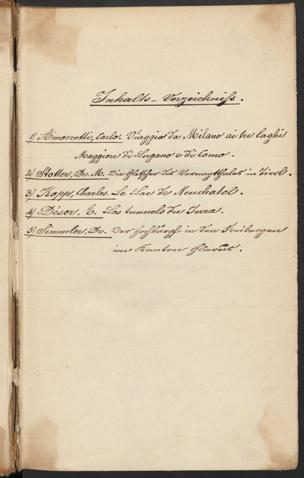 Inhalts-Verzeichniß.
1) Amoretti, Carlo. Viaggio da Milano ai tre laghi
Maggiore di Lugano e di Como.
2) Stotter, Dr. M. Die Gletscher des Vernagtthales in Tirol.
3) Kopp, Charles. Le Lac de Neuchatel.
4) Desor, E. Les tunnels du Jura.
5) Simmler, Dr. Der Hochkärpf in den Freibergen
im Kanton Glarus.